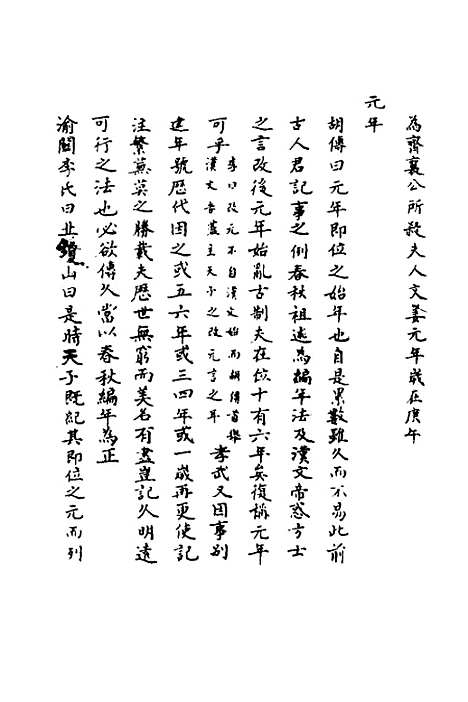 為齊襄公所殺夫人文姜元年歲在庚午
元年
胡傳曰元年即位之始年也自是累數雖久而不易此前
古人君記事之例春秋祖述為編年法及漢文帝惑方士
之言改後元年始亂古制夫在位十有六年矣復稱元年
可乎李曰改元不自漢文始而胡傳首樂漢文者蓋主天子之改元言之耳孝武又因事別
建年號歷代因之或五六年或三四年或一歲再更使記
注繁蕪莫之勝載夫歷世無窮而美名有盡豈記久明遠
可行之法也必欲傳久當以春秋編年為正
渝關李氏曰並山曰是時天子既紀其即位之元而列